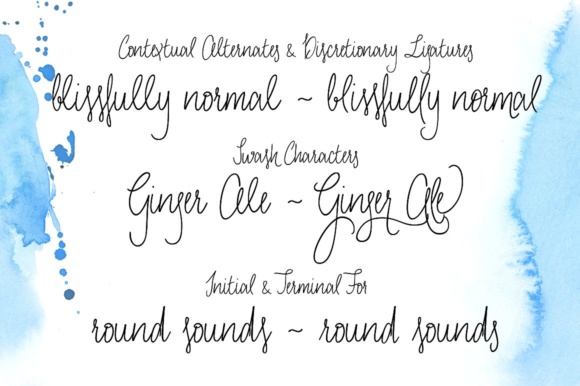 Contextual Alternates & Discretionary Ligatures
blissfully normal ~ blissfully normal
Swash Characters
Ginger Ale ~ Ginger Ale
Initial & Terminal For
round sounds ~ round sounds